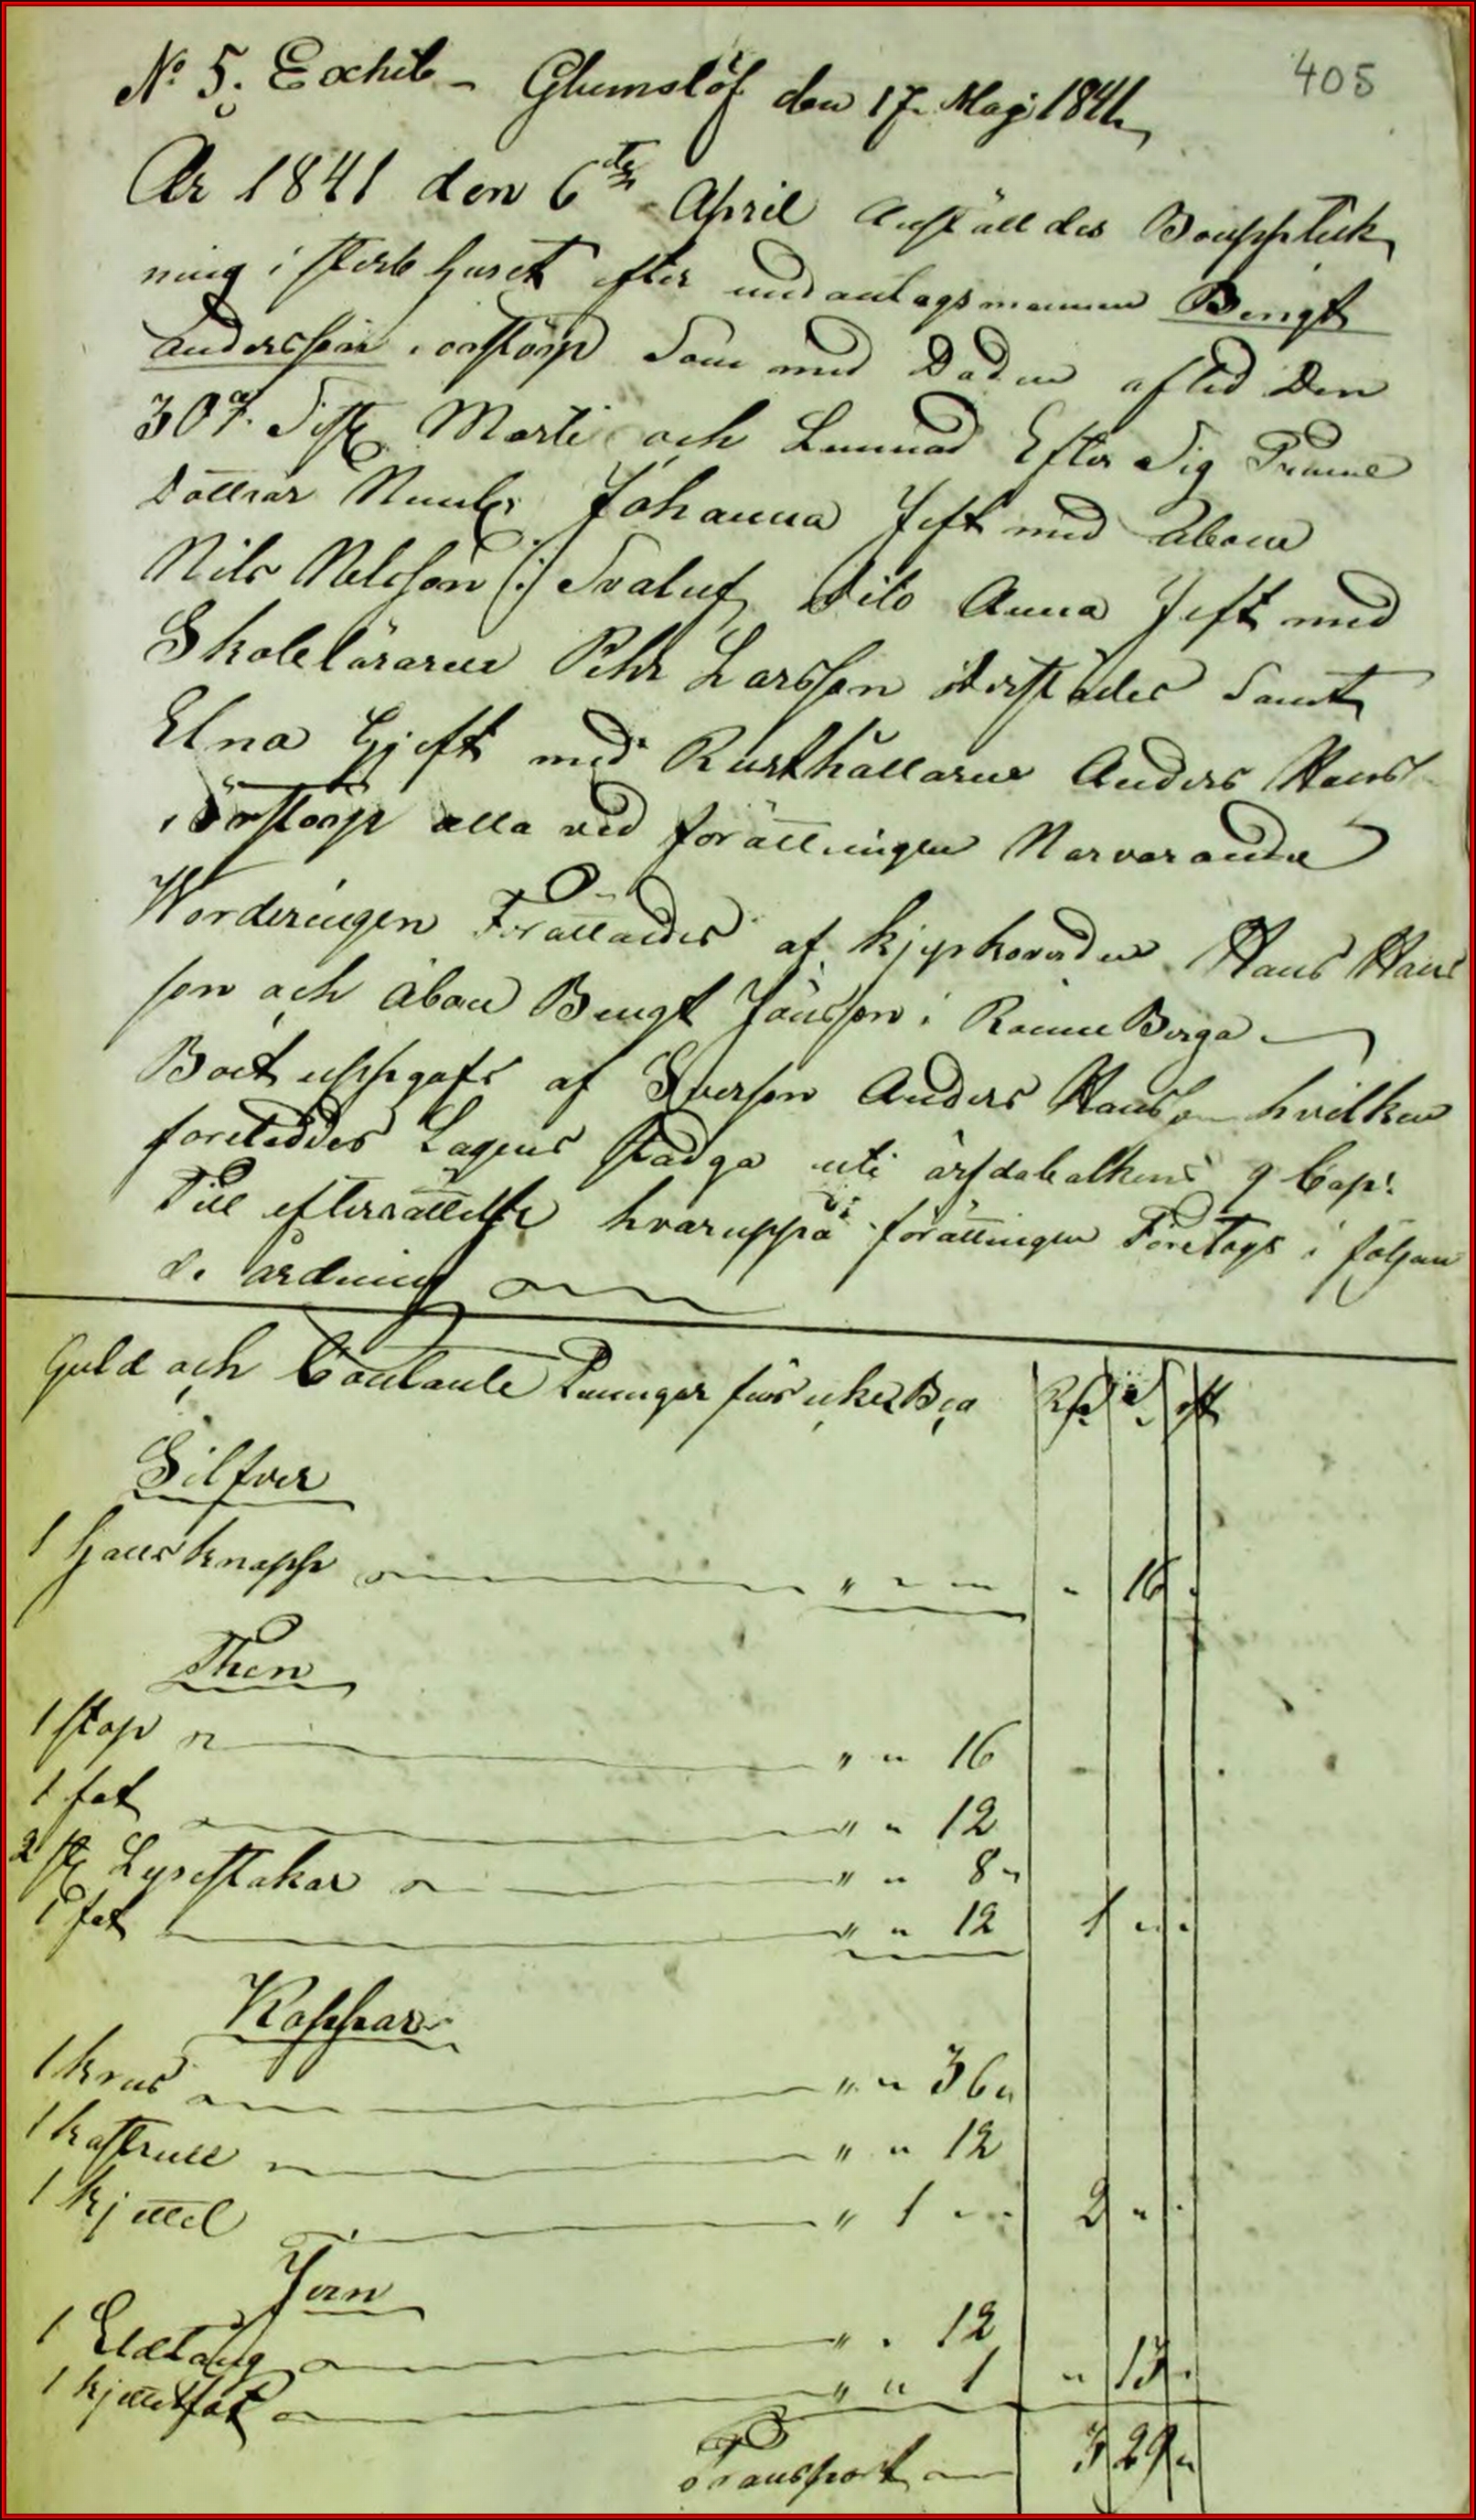 405
No 5. Exhib - Glumslöf den 17 Maj 1841
År 1841 den 6te April anstäldes Boupptek
ning i sterbhuset efter undantagsmannen Bengt
Andersson i örstorp som med Döden afled Den
30de Sistl Marti och Lemnad Efter sig Trenne
Döttrar Nemln Johanna Gift med åboen
Nils Nelsson (i) Svalöf, Dito Anna Gift med
Skoleläraren Pehr Larsson derstädes samt
Elna Gjift med Rusthållaren Anders Hanss-
i Örstorp alla vid förättningen Narvarande
Wärderingen Förättades af kjyrkovärden Hans Hans
son och åboen Bengt Jönsson i Rönneberga
Boet uppgafs af Sverson Anders Hansson hvilken
företeddes Lagens stadga uti ärfdabalkens 9 Cap:
Till efterrättelse hvaruppå förättningen Företogs i följan
de ordning
Guld och Contante Penningar fins icke
Rd s rst
Silfver
1 Hansknapp " - - - " 16 "
Then
1 stop " " 16
1 fat " " 12
2 st Lysestakar " " 8 "
1 fat " " 12 1 " "
Koppar
1 krus " " 36 "
1 kastrull " " 12
1 kjettel " 1 " 2 " "
Jern
1 Eldtång " " 12
1 kjettelfot " " 1 " 13 "
Transport 3 29 "